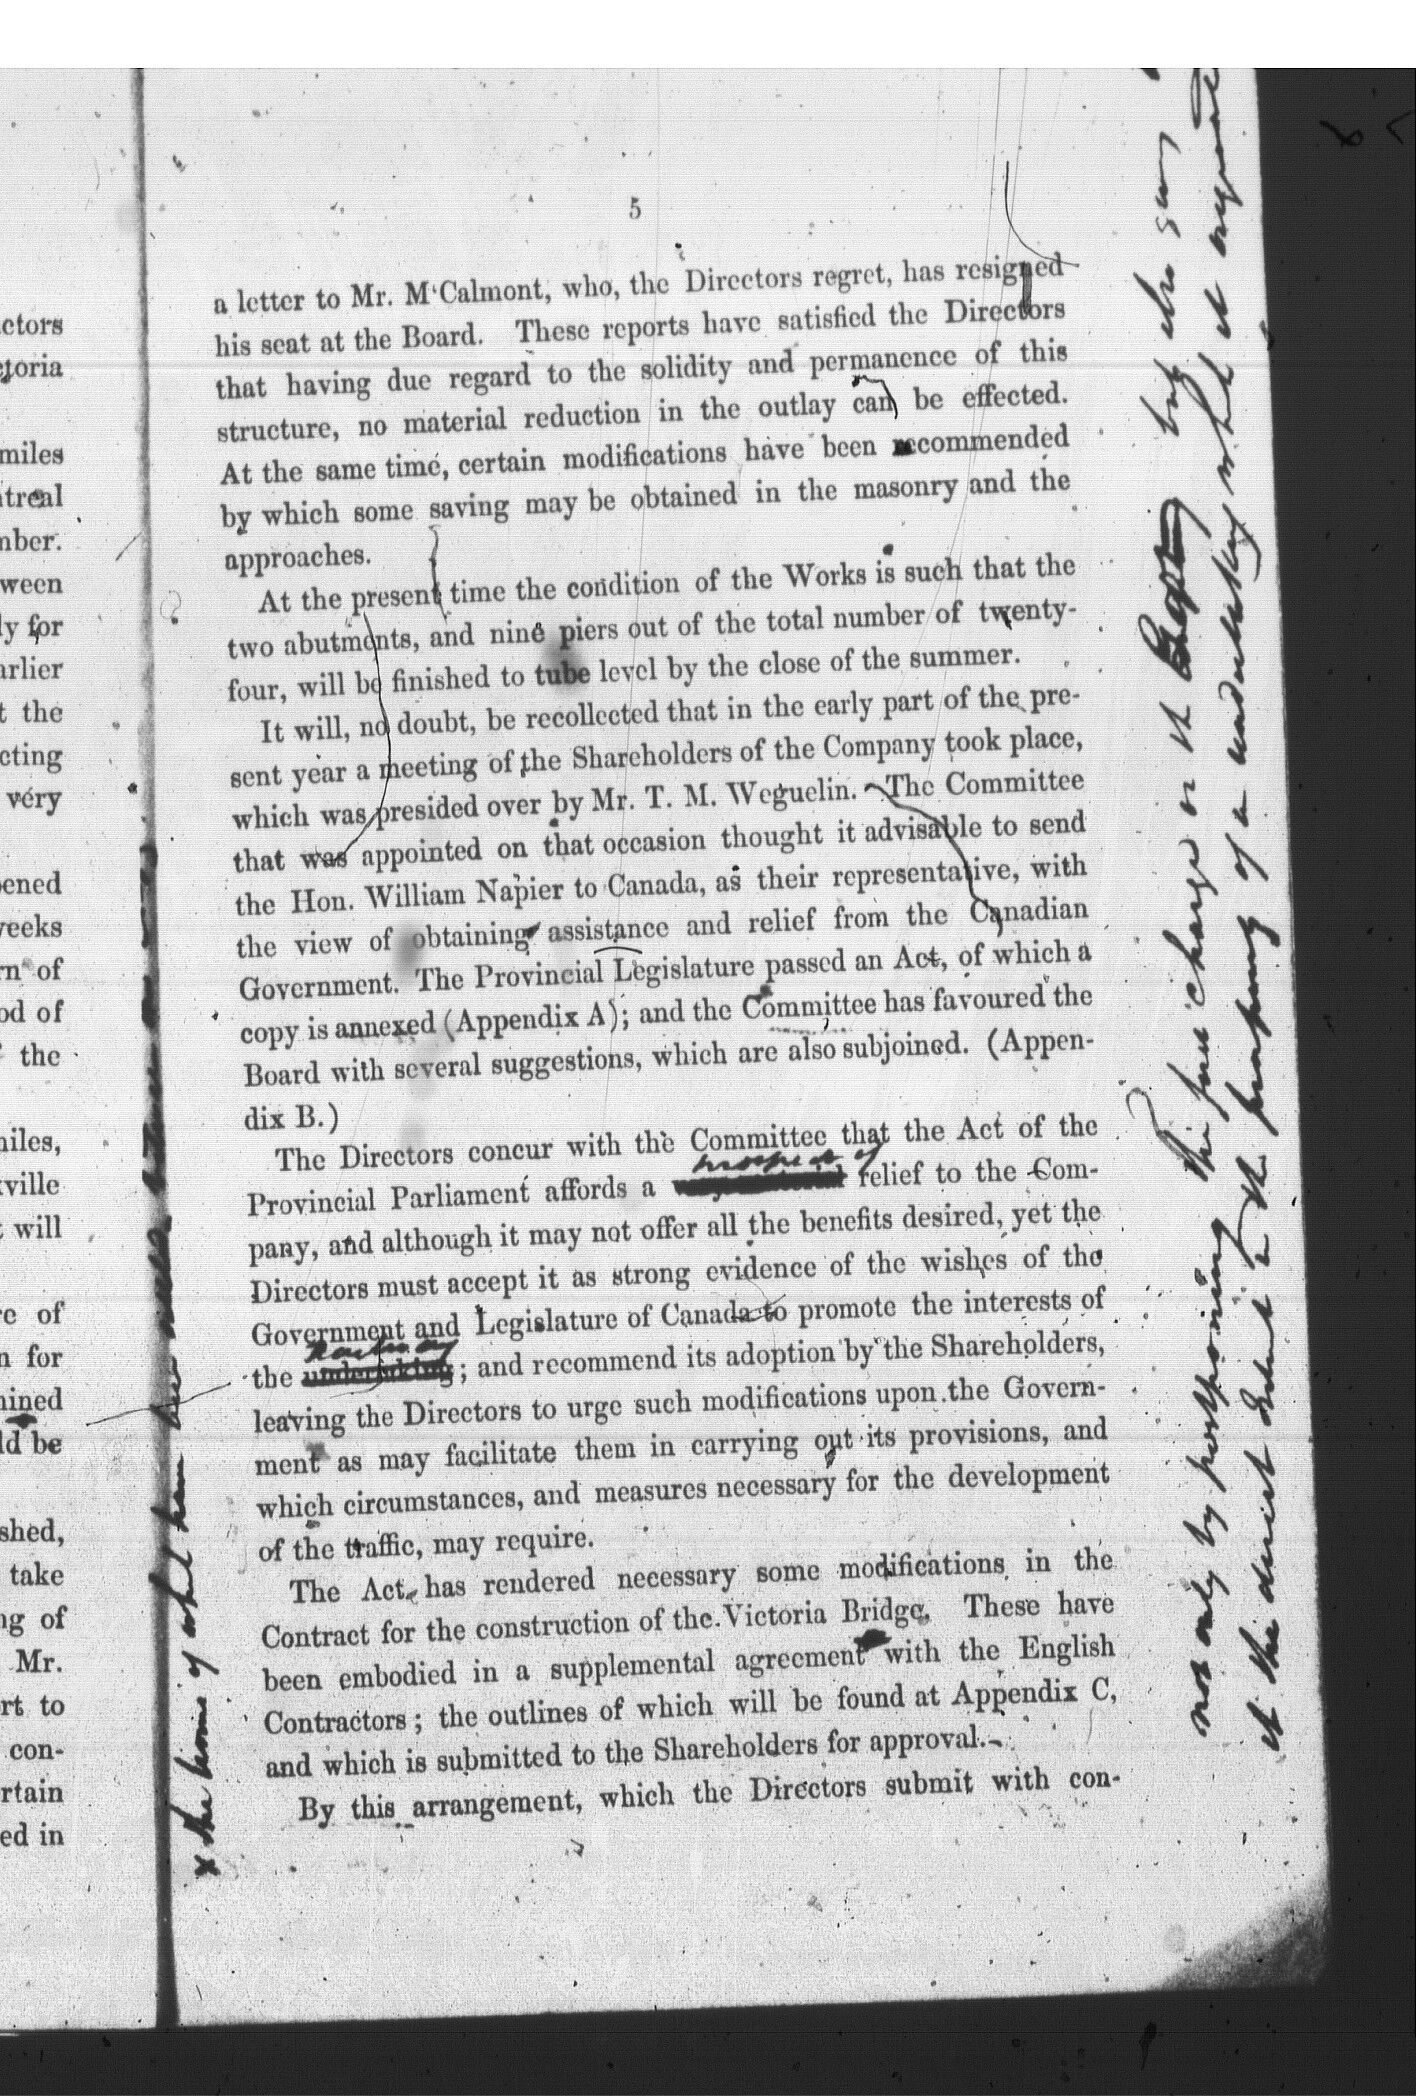 5
a letter to Mr. M'Calmont, who, the Directors regret, has resigned
his seat at the Board. These reports have satisfied the Directors
that having due regard to the solidity and permanence of this
structure, no material reduction in the outlay can be effected.
At the same time, certain modifications have been recommended
by which some saving may be obtained in the masonry and the
approaches.
At the present time the condition of the Works is such that the
two abutments, and nine piers out of the total number of twenty-
four, will be finished to tube level by the close of the summer.
It will, no doubt, be recollected that in the early part of the pre-
sent year a meeting of the Shareholders of the Company took place,
which was presided over by Mr. T. M. Weguelin. The Committee
that was appointed on that occasion thought it advisable to send
the Hon. William Napier to Canada, as their representative, with
the view of obtaining assistance and relief from the Canadian
Government. The Provincial Legislature passed an Act, of which a
copy is annexed (Appendix A); and the Committee has favoured the
Board with several suggestions, which are also subjoined. (Appen-
dix B.)
The Directors concur with the Committee that the Act of the
prospect of
Provincial Parliament affords a relief to the Com-
pany, and although it may not offer all the benefits desired, yet the
Directors must accept it as strong evidence of the wishes of the
Government and Legislature of Canada to promote the interests of
Railway
the undertaking; and recommend its adoption by the Shareholders,
leaving the Directors to urge such modifications upon the Govern-
ment as may facilitate them in carrying out its provisions, and
which circumstances, and measures necessary for the development
of the traffic, may require.
The Act has rendered necessary some modifications in the
Contract for the construction of the Victoria Bridge. These have
been embodied in a supplemental agreement with the English
Contractors; the outlines of which will be found at Appendix C,
and which is submitted to the Shareholders for approval.
By this arrangement, which the Directors submit with con-
x the home of what have been
not only by postponing the first charge on the but the
of the direct interest in the prosperity of an undertaking which it
ctors
ctoria
miles
ntreal
mber.
ween
ly for
arlier
t the
cting
very
pened
weeks
rn of
od of
the
miles,
kville
t will
re of
n for
mined
ld be
shed,
take
ng of
Mr.
rt to
con-
rtain
ed in